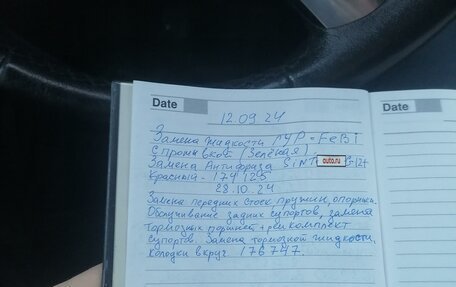 Date
12.09 24
Замена жидкости ГУР - FeBi
с промывкой (Зелёная)
Замена Антифриза SiNT auto.ru G-12+
Красный - 174125
28.10.24
Замена передних стоек, пружин, опорных.
Обслуживание задних супортов, замена
тормозных поршней + рем комплект
супортов. Замена тормозной жидкости.
Колодки вкруг 176747.
Date